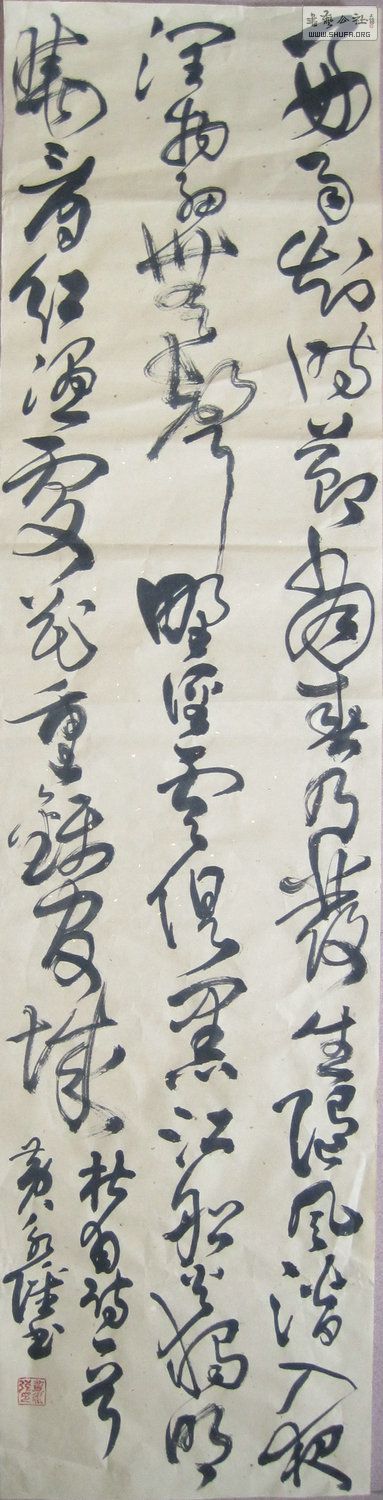 書藝公社
WWW.SHUFA.ORG
好雨知時節當春乃發生隨風潛入夜
潤物細無聲野徑雲俱黑江船火獨明
曉看紅濕處花重錦官城
杜甫詩一首
黃永雄书